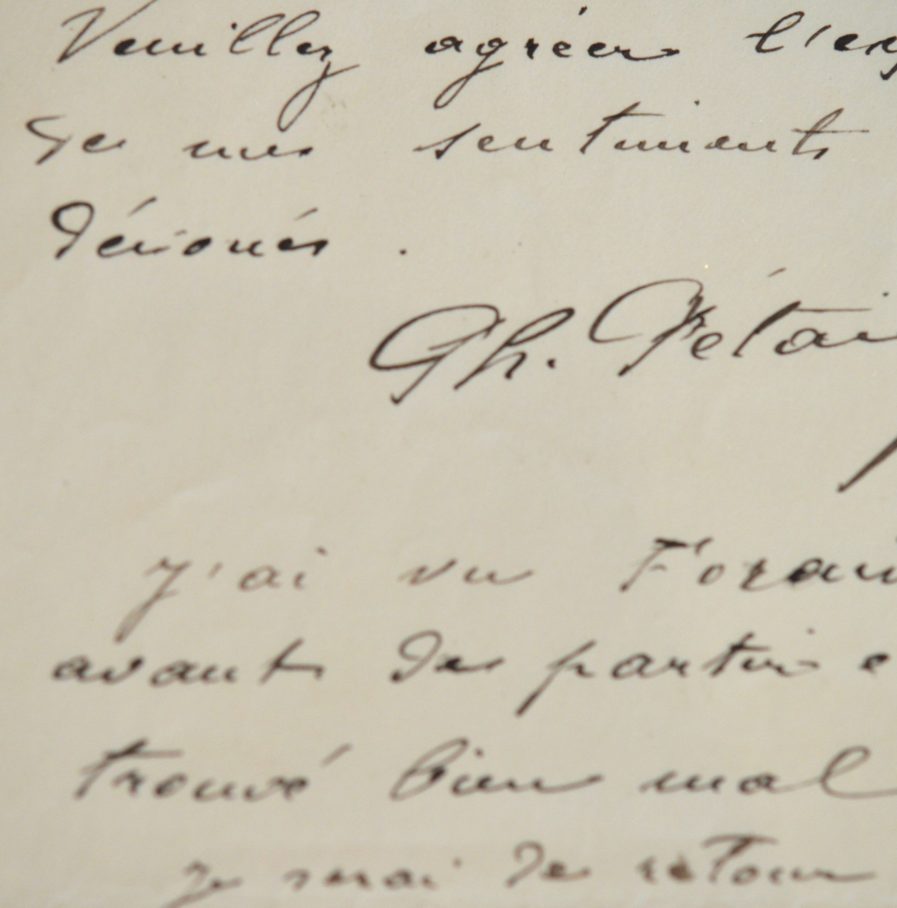 Veuillez agréer l'ex
de mes sentiments
dévoués.
Ph. Pétai
J'ai vu Forai
avant de partir e
trouvé bien mal
je serai de retour